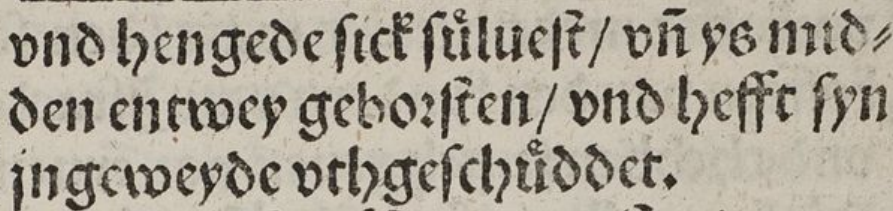 vnd hengede ſick ſuͤlueſt/ vn̄ ys mid⸗
den entwey geborſten/ vnd hefft ſyn
jngeweyde vthgeſchuͤddet.